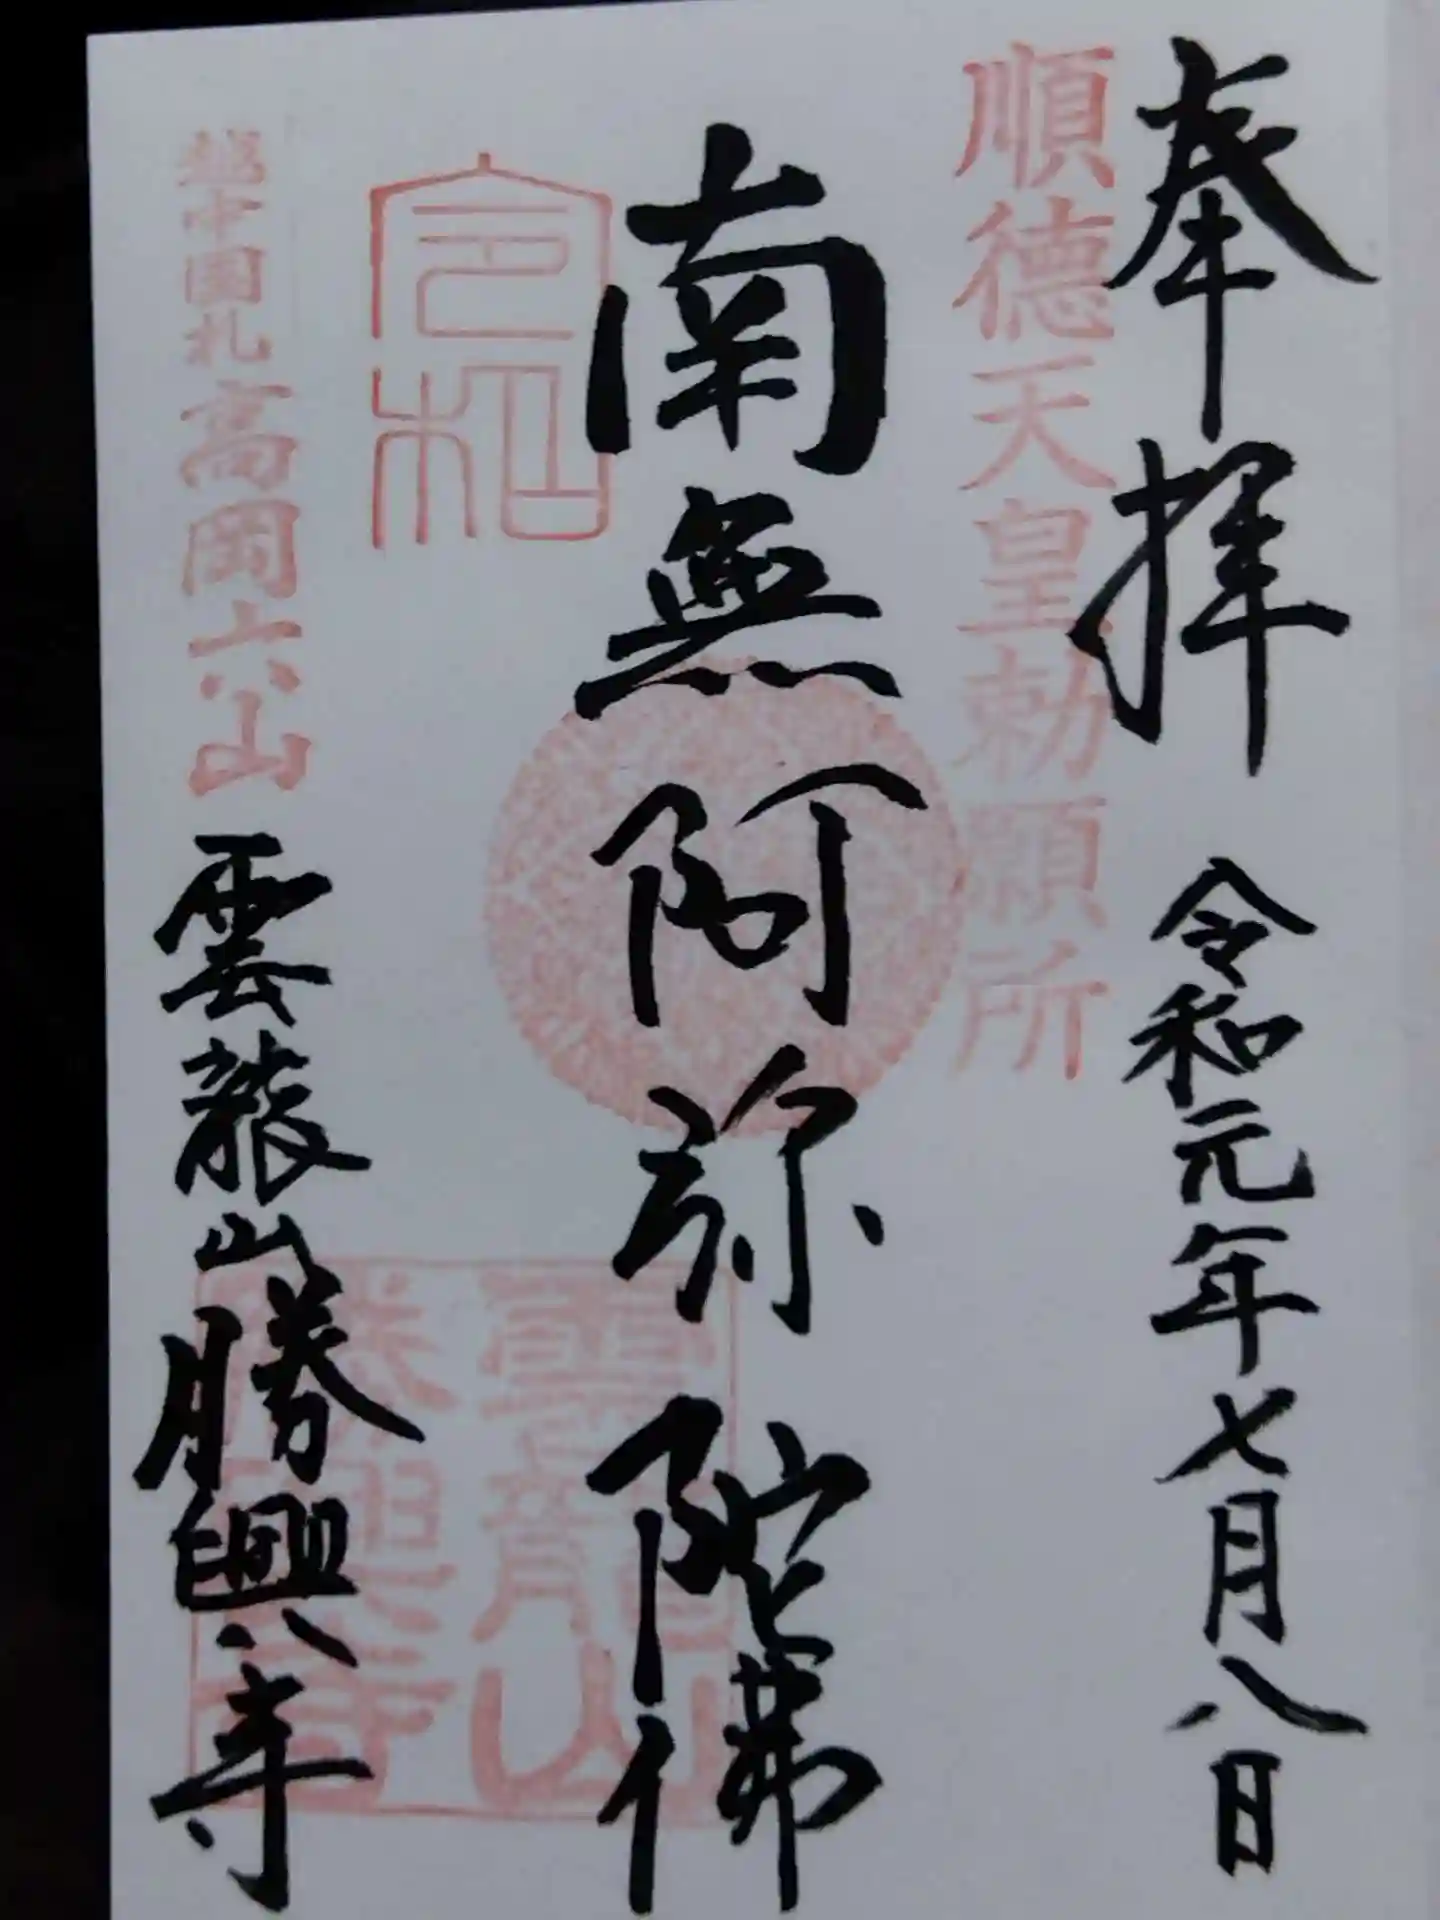 奉拝 令和元年七月八日
順徳天皇勅願所
南無阿弥陀佛
令和
雲龍山
勝興寺
越中国札高岡六山
雲龍山勝興寺